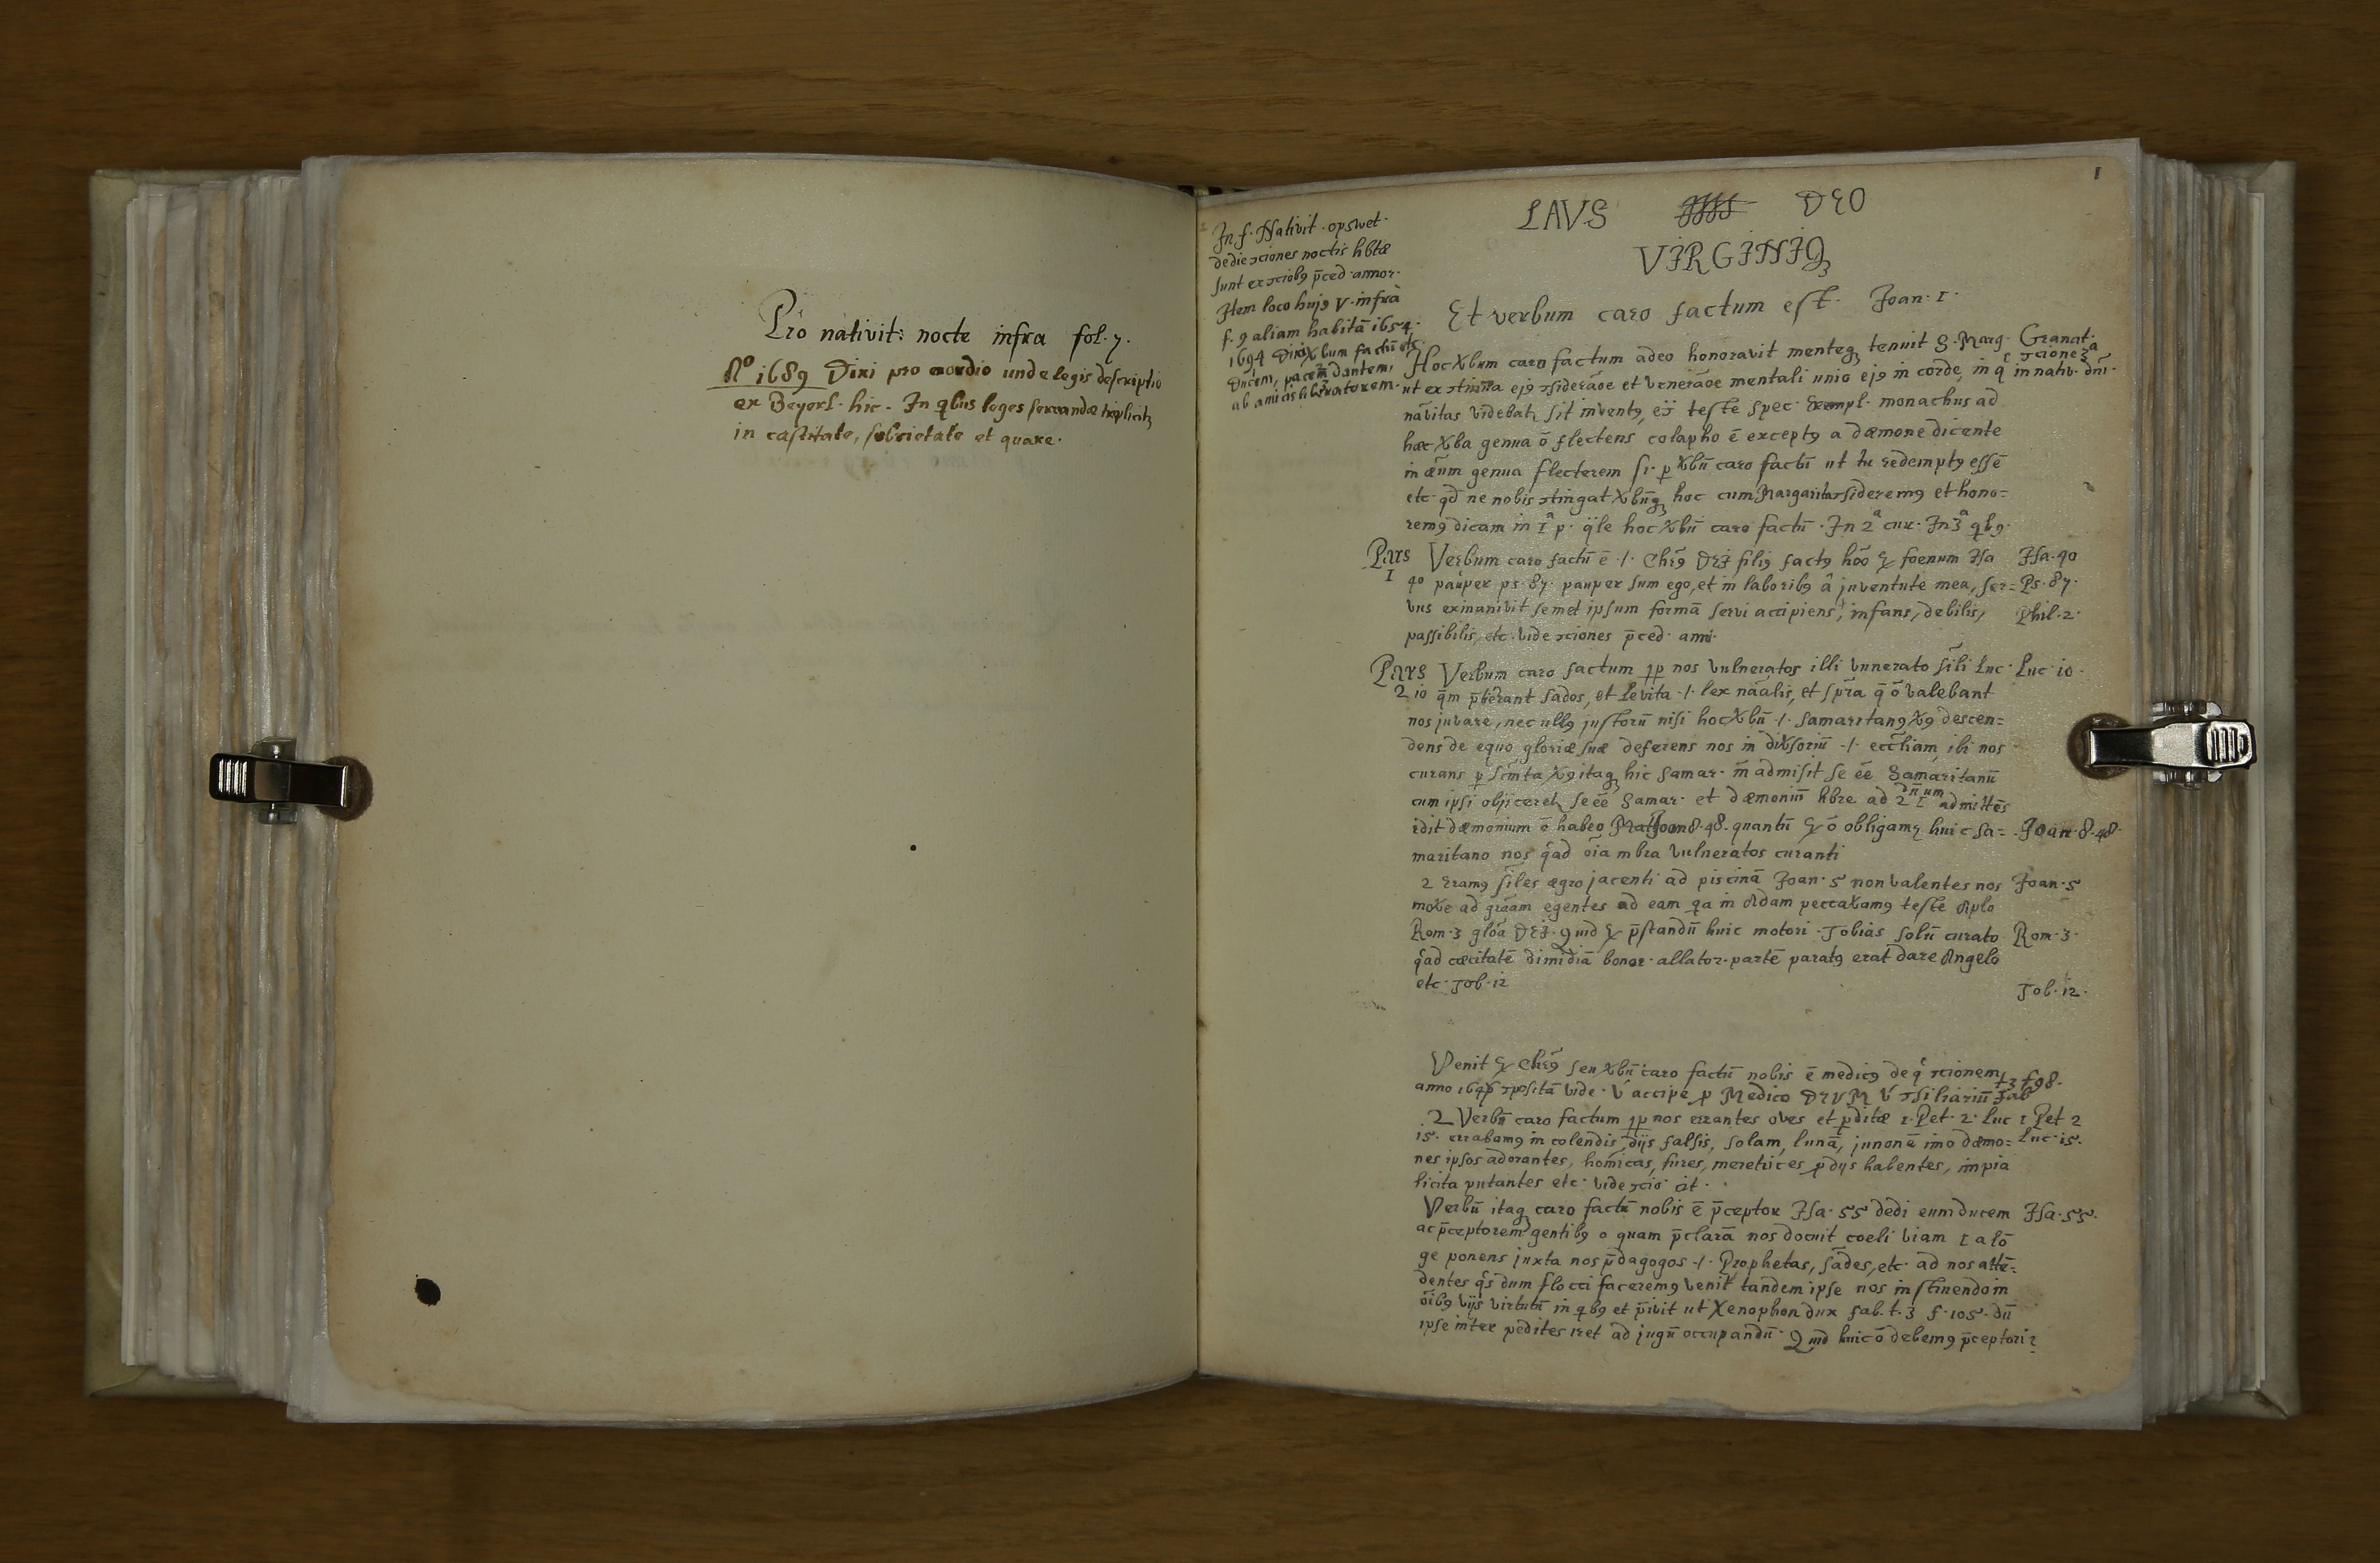 Pro nativit: nocte infra fol. 7.
Ao 1689 Dixi pro exordio unde legis descriptio
ex Beyerl. hic. In qbus leges servandæ tripliciter
in castitate, sobrietate et quare.
1
LAVS DEO
VIRGINIQ
In f. Nativit. opswet.
sunt ex ↄciobꝯ p̄ced. annor.
Item loco hujꝯ v. infra
f. 9 aliam habitā 1654.
1694
ducem, pacem dantem,
ab amicis
Et verbum caro factum est. Joan. 1.
Hoc Xbum caro factum adeo honoravit menteq tenuit S. Marg. Granat.
in nativ. dni.
navitas videbatr sit inventꝯ, teste spec. Exempl. monachus ad
hæc Xba genua ō flectens colapho ē exceptꝯ a dæmone dicente
in æum genua flecterem si p Xbū caro factū ut tu redemptꝯ essē
etc. qd ne nobis ↄtingat Xbūq hoc cum Margarita ↄsideremꝯ et hono=
remꝯ dicam in 1â p. qle hoc Xbū caro factū. In 2â cur. In 3â qbꝯ.
Pars Verbum caro factū ē .1. Chrꝯ DEI filiꝯ factꝯ hoō foenum Isa Isa. 40
1 40 pauper ps. 87. pauper sum ego, et in laboribꝯ â juventute mea, ser= Ps. 87.
vus exinanivit semet ipsum formā servi accipiens, infans, debilis, Phil. 2.
passibilis, etc. vide ↄciones p̄ced. anni.
Pars Verbum caro factum pp nos vulneratos illi vunerato sili Luc. Luc. 10.
2 10 qm p̄tierant sados, et Levita .1. lex naalis, et spra q ō valebant
nos juvare, nec ullꝯ justorū nisi hoc Xbū .1. Samaritanꝯ Xꝯ descen=
dens de equo gloriæ suæ deferens nos in diXsoriū .1. eccliam, ibi nos
curans p scmta Xꝯ itaq hic Samar. m̄ admisit se ēe Samaritanū
cum ipsi objiceretr se ēe Samar. et dæmoniū hbre ad 2dū 1um admittēs
idit dæmonium ō habeo Joan 8. 48. quantū ō obligamr huic Sa= Joan. 8. 48.
maritano nos qad oia mbra vulneratos curanti
2 Eramꝯ siles ægro jacenti ad piscinā Joan. 5 non valentes nos Joan. 5
moXe ad graam egentes ad eam qa in Adam peccaXamꝯ teste Aplo
Rom. 3 gloa DEI. Quid p̄standū huic motori. Tobias solū curato Rom. 3.
qad cæcitatē dimidiā bonor. allator. partē paratꝯ erat dare Angelo
etc. Tob. 12
Tob. 12.
Venit Chrꝯ seu Xbū caro factū nobis ē medicꝯ de q ↄcionem t3 f98.
anno ↄpositā vide. V accipe p Medico DEUM V ↄsiliariū Fab
2 Verbū caro factum pp nos errantes oves et pditæ 1. Pet. 2. Luc 1 Pet 2
15. errabamꝯ in colendis dijs falsis, solam, lunā, junonē imo dæmo= Luc. 15.
nes ipsos adorantes, homicas, fures, meretrices p dijs habentes, impia
licita putantes etc. vide ↄcio cit.
Verbū itaq caro factū nobis ē p̄ceptor Isa. 55 dedi eum ducem Isa. 55.
ac p̄ceptorem gentibꝯ o quam p̄clarā nos docuit coeli viam 1 a lō
ge ponens juxta nos p̄dagogos .1. Prophetas, sādes, etc. ad nos attē=
dentes qs dum flocci faceremꝯ venit tandem ipse nos instruendo in
oibꝯ vijs virtutū in qbꝯ et p̄ivit ut Xenophon dux fab. t. 3 f. 105. dū
ipse inter pedites iret ad jugū occupandū. Quid huic ō debemꝯ p̄ceptori?